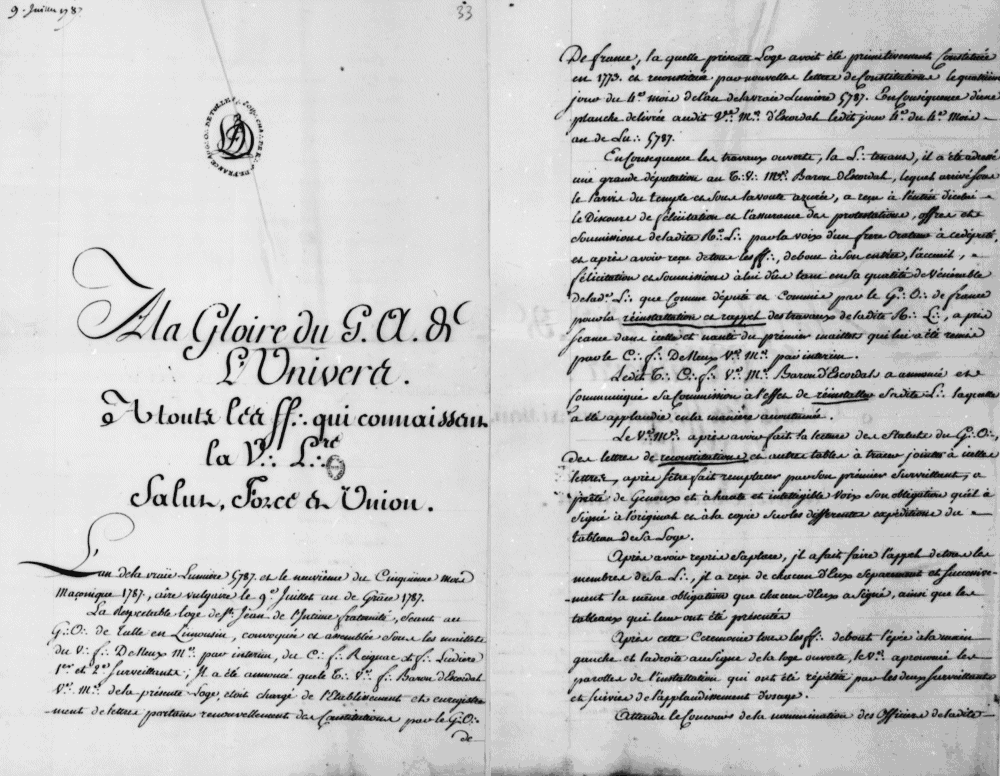 9. Juillet 1787
33
A la Gloire du G. A. de
L'Univers.
A touts les ff∴ qui connaissent
la V∴ L∴
Salut, Force et Union.
L'an de la vraie Lumiere 5787. et le neuvième du Cinquième mois
Maçonique 1787., aire vulgaire le 9e Juillet an de Grâce 1787.
La Respectable loge de St Jean de l'Intime fraternité, séant au
G∴ O∴ de Tulle en Limousin, convoquée et assemblée sous les maillets
du V∴ f∴ De Meux Me par interim, du C∴ f∴ Reignac et f∴ Ludiere
1er et 2d Surveillants; Il a été annoncé que le T∴ V∴ f∴ Baron d'Escordal
Ve Me de la présente Loge, etoit chargé de l'Etablissement et enregistre-
ment de lettres portant renouvellement des Constitutions par le G∴ O∴
de
De france, la quelle présente Loge avoit été primitivement Constituée
en 1773. et reconstituée par nouvelles lettres de Constitutions le quatrième
jour du 4e mois de l'an de la vraie Lumiere 5787. En Conséquence d'une
planche délivrée audit Ve Me d'Escordal ledit jour 4e du 4e Mois
an de Lu∴ 5787.
En Consequence les travaux ouverts, la L∴ tenant, il a été adressé
une grande députation au T∴ V∴ Me Baron d'Escordal, lequel arrivé sous
le Parvis du temple et sous la voute azurée, a reçu à l'entrée d'icelui
le Discours de félicitation et l'assurance des protestations, offres et
Soumissions de ladite Re L∴ par la voix d'un frere Orateur à ce député,
et après avoir reçu de tous les ff∴, debout à son entrée, l'accueil,
félicitation et soumission à lui dus tant en sa qualité de Vénérable
de lade L∴ que Comme député et Commis par le G∴ O∴ de france
pour la réinstallation et rappel des travaux de ladite R∴ L∴, a pris
séance dans icelle et nanti du premier maillet qui lui a été remis
par le C∴ f∴ De Meux Ve Me par interim.
Ledit T∴ C∴ f∴ Ve Me Baron d'Escordal a annoncé et
Communiqué sa Commission à l'effet de réinstaller sa dite L∴ laquelle
a été applaudie en la manière accoutumée.
Le Ve Me après avoir fait la lecture des Statuts du G∴ O∴,
des lettres de reconstitutions et autres tables à tracer jointes à icelles
lettres, après s'être fait remplacer par son prémier Surveillant, a
prêté de Genoux et à haute et intelligible Voix son obligation qu'il a
signé à l'original et à la copie sur les differentes expéditions du
tableau de sa Loge.
Après avoir repris sa place, il a fait faire l'appel de tous les
membres de sa L∴, il a reçu de chacun d'Eux séparement et successive-
ment la même obligation que chacun d'Eux a signé, ainsi que les
tableaux qui leur ont été présentés
Après cette Ceremonie tous les ff∴ debout l'épée à la main
gauche et la droite au Signe de la loge ouverte, le Ve a prononcé les
parolles de l'installation qui ont été répétées par les deux surveillants
et suivies de l'applaudissement d'usage.
Attendu le Concours de la nommination des Officiers de ladite